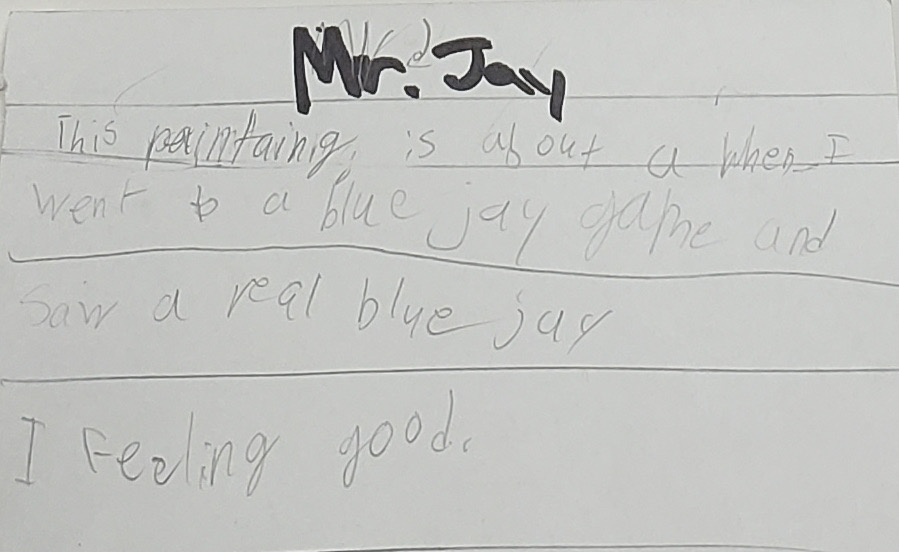 Mr. Jay
This paintaing, is about a when I
went to a blue jay game and
saw a real blue jay
I Feeling good.